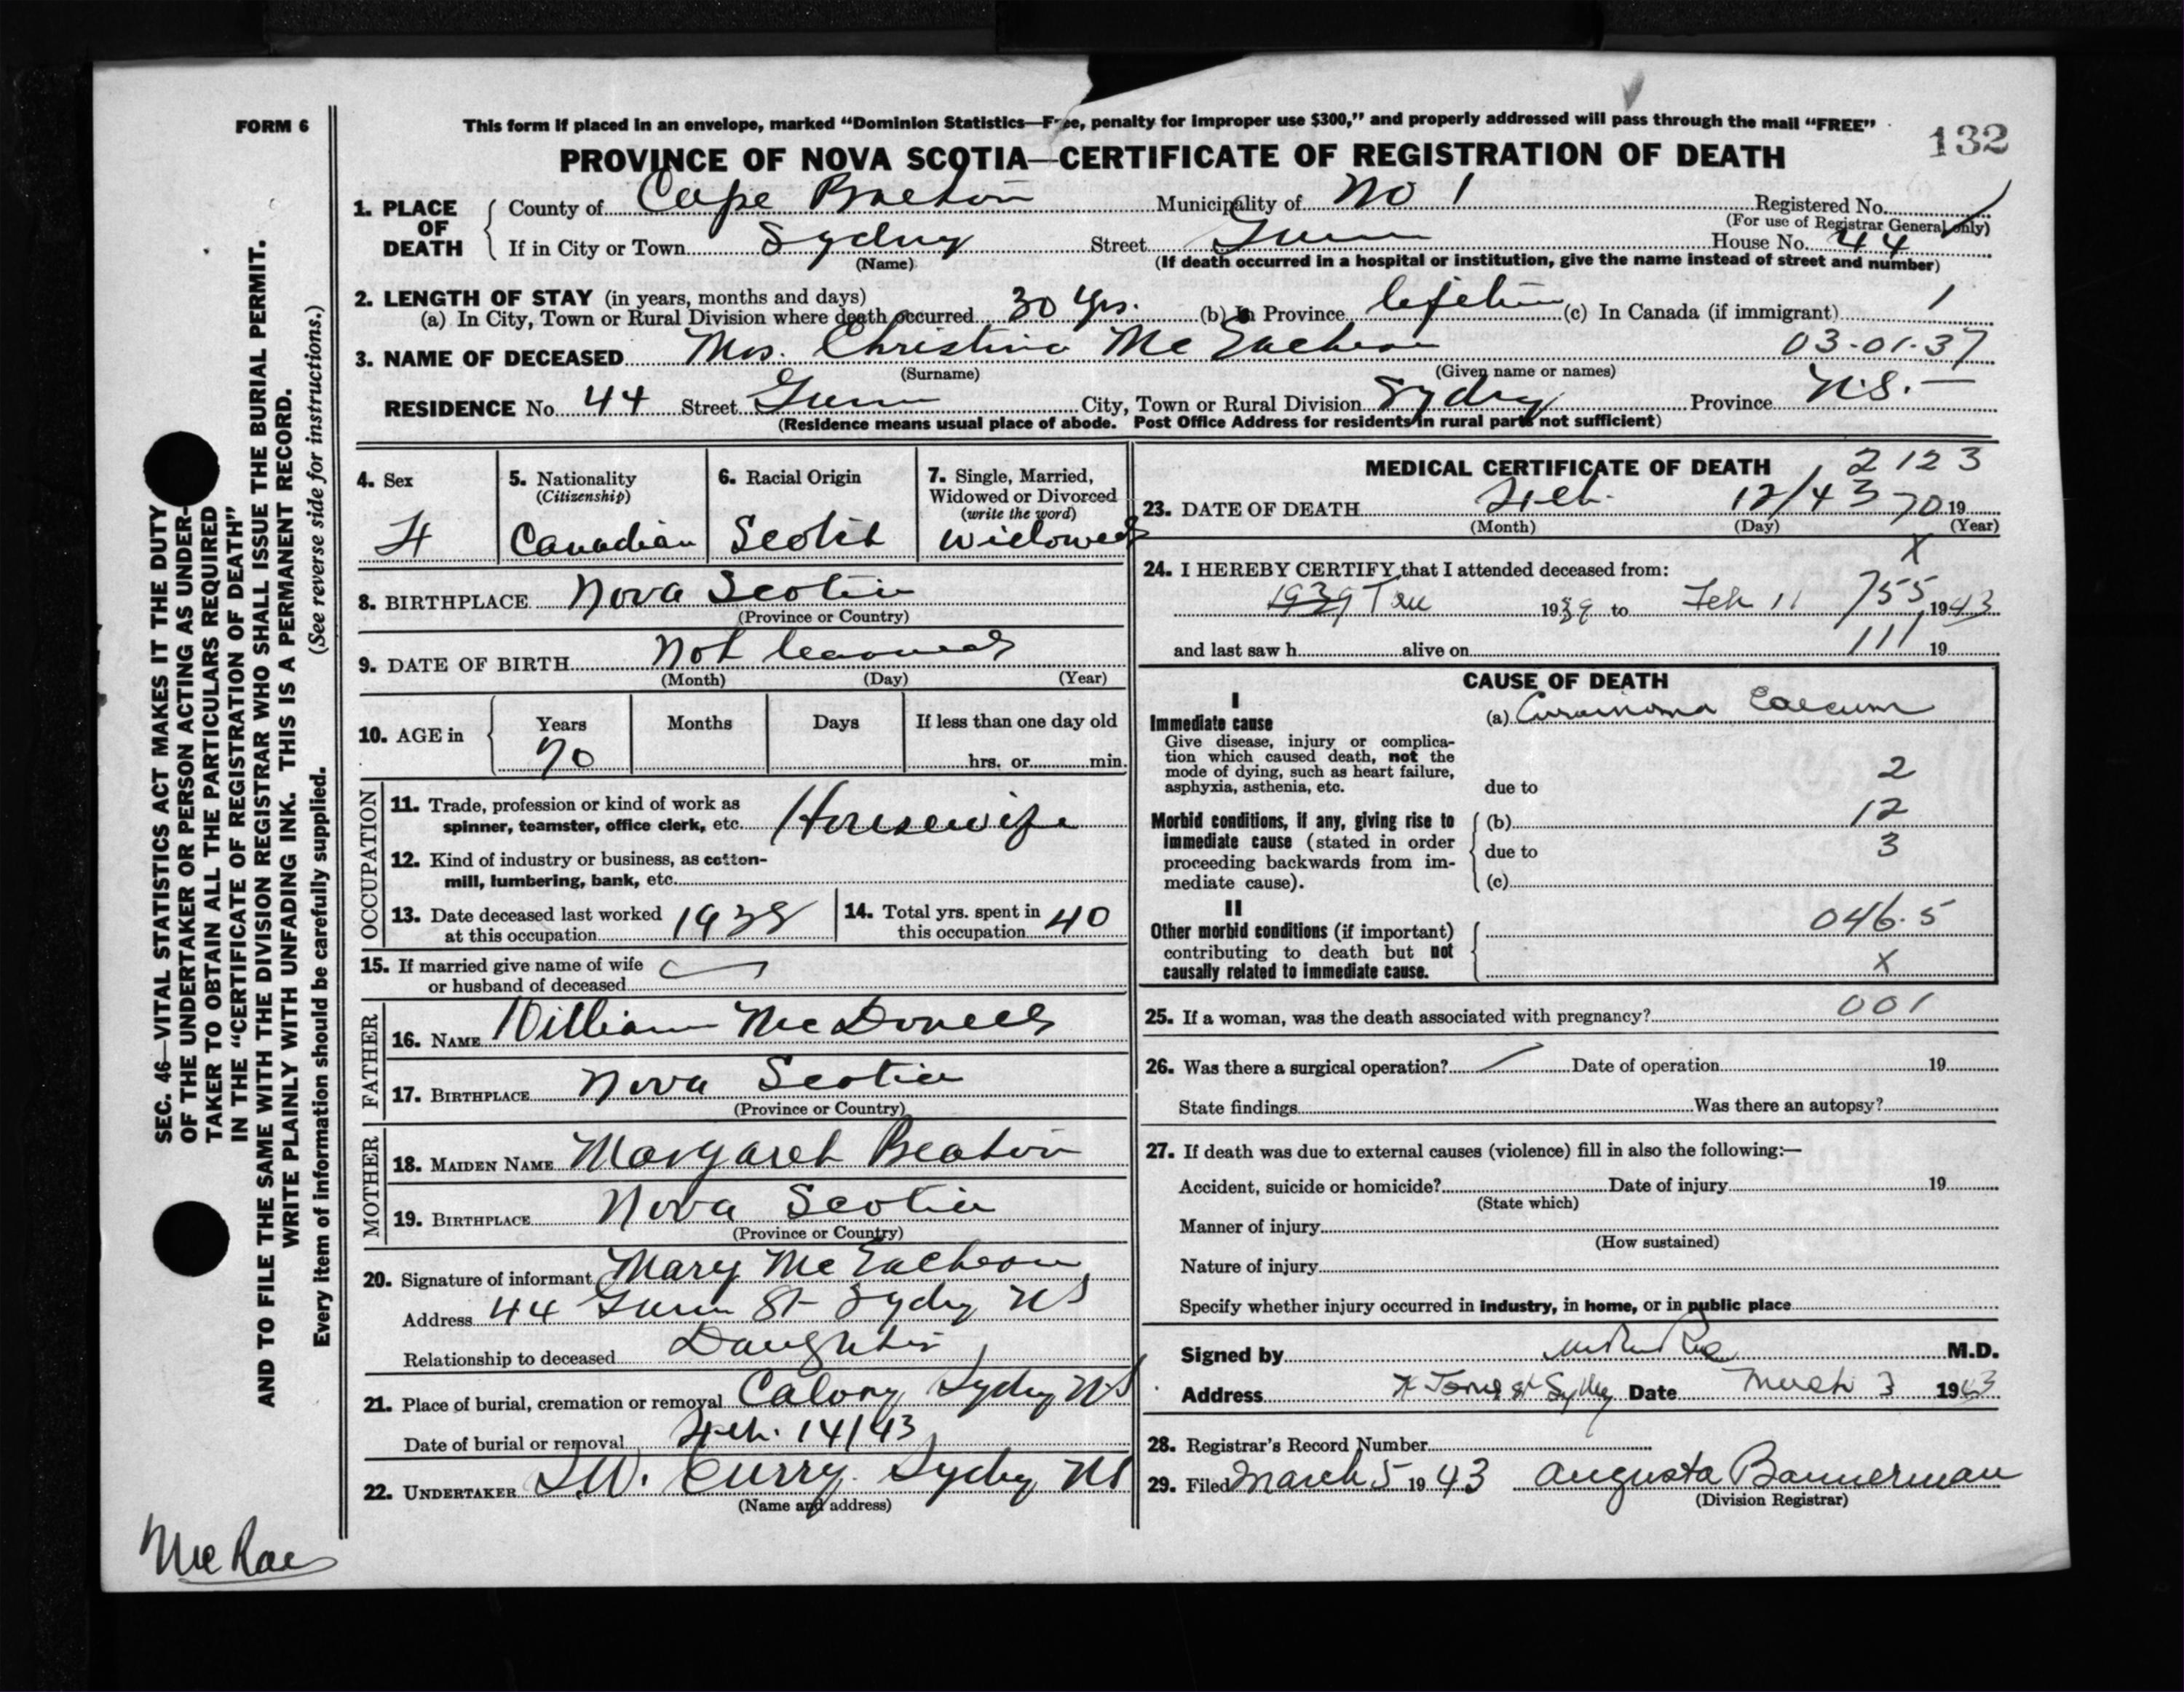 FORM 6
This form if placed in an envelope, marked “Dominion Statistics—Free, penalty for improper use $300,” and properly addressed will pass through the mail “FREE”
132
PROVINCE OF NOVA SCOTIA—CERTIFICATE OF REGISTRATION OF DEATH
1. PLACE OF DEATH
County of Cape Breton Municipality of No 1 Registered No.
(For use of Registrar General only)
If in City or Town Sydney Street House No. 44
(Name) (If death occurred in a hospital or institution, give the name instead of street and number)
2. LENGTH OF STAY (in years, months and days)
(a) In City, Town or Rural Division where death occurred 30 yrs. (b) In Province lifetime (c) In Canada (if immigrant) 1
3. NAME OF DECEASED Mrs. Christina McEachern 03-01-37
(Surname) (Given name or names)
RESIDENCE No. 44 Street City, Town or Rural Division Sydney Province N.S.—
(Residence means usual place of abode. Post Office Address for residents in rural parts not sufficient)
4. Sex
F
5. Nationality
(Citizenship)
Canadian
6. Racial Origin
Scotch
7. Single, Married,
Widowed or Divorced
(write the word)
Widowed
8. BIRTHPLACE Nova Scotia
(Province or Country)
9. DATE OF BIRTH Not learned
(Month) (Day) (Year)
10. AGE in
Years Months Days If less than one day old
70 hrs. or min.
OCCUPATION
11. Trade, profession or kind of work as
spinner, teamster, office clerk, etc. Housewife
12. Kind of industry or business, as cotton-
mill, lumbering, bank, etc.
13. Date deceased last worked
at this occupation 1938
14. Total yrs. spent in
this occupation 40
15. If married give name of wife
or husband of deceased
FATHER
16. NAME William McDonell
17. BIRTHPLACE Nova Scotia
(Province or Country)
MOTHER
18. MAIDEN NAME Margaret Beaton
19. BIRTHPLACE Nova Scotia
(Province or Country)
20. Signature of informant Mary McEachern
Address 44 St Sydney NS
Relationship to deceased Daughter
21. Place of burial, cremation or removal Calvary Sydney NS
Date of burial or removal Feb. 14/43
22. UNDERTAKER Curry. Sydney NS
(Name and address)
MEDICAL CERTIFICATE OF DEATH
2123
23. DATE OF DEATH Feb. 12/43 70 19
(Month) (Day) (Year)
X
24. I HEREBY CERTIFY that I attended deceased from:
1939 1939 to Feb 11 755 1943
and last saw h alive on 111 19
CAUSE OF DEATH
I
Immediate cause
Give disease, injury or complica-
tion which caused death, not the
mode of dying, such as heart failure,
asphyxia, asthenia, etc.
(a) Carcinoma Caecum
2
due to
Morbid conditions, if any, giving rise to
immediate cause (stated in order
proceeding backwards from im-
mediate cause).
(b) 12
due to 3
(c)
II
Other morbid conditions (if important)
contributing to death but not
causally related to immediate cause.
046.5
X
25. If a woman, was the death associated with pregnancy? 001
26. Was there a surgical operation? Date of operation 19
State findings Was there an autopsy?
27. If death was due to external causes (violence) fill in also the following:—
Accident, suicide or homicide? Date of injury 19
(State which)
Manner of injury
(How sustained)
Nature of injury
Specify whether injury occurred in industry, in home, or in public place
Signed by M.D.
Address Sydney Date March 3 1943
28. Registrar's Record Number
29. Filed March 5 1943 Augusta Bannerman
(Division Registrar)
SEC. 46—VITAL STATISTICS ACT MAKES IT THE DUTY
OF THE UNDERTAKER OR PERSON ACTING AS UNDER-
TAKER TO OBTAIN ALL THE PARTICULARS REQUIRED
IN THE “CERTIFICATE OF REGISTRATION OF DEATH”
AND TO FILE THE SAME WITH THE DIVISION REGISTRAR WHO SHALL ISSUE THE BURIAL PERMIT.
WRITE PLAINLY WITH UNFADING INK. THIS IS A PERMANENT RECORD.
Every item of information should be carefully supplied. (See reverse side for instructions.)
McRae